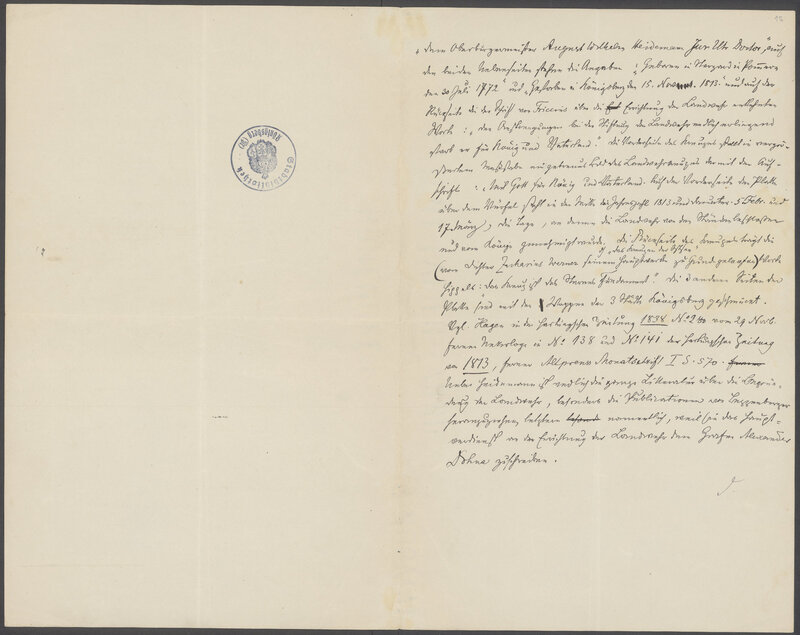 12
„dem Oberbürgermeister August Wilhelm Heidemann Jur. Utr. Doctor", auf
den beiden Nebenseiten stehen die Angaben: „Geboren in Stargard in Pommern
den 30 Juli 1772" und „Gestorben in Königsberg den 15. Novemb. 1813" und auf der
Rückseite die der Schrift von Friccius über die Errichtung der Landwehr entlehnten
Worte: „den Anstrengungen bei der Stiftung der Landwehr endlich erliegend
starb er für König und Vaterland." Die Vorderseite des Kreuzes stellt in
Maßstabe ein getreues Bild des Landwehrkreuzes dar mit der Auf-
schrift: „Mit Gott für König und Vaterland. Auf der Vorderseite der Platte
über dem Würfel steht in der Mitte die Jahreszahl 1813 und darunter 5 Febr. und
17 März, die Tage, an denen die Landwehr von den Ständen beschlossen
und vom Könige genehmigt wurde. Die Rückseite des Kreuzes trägt die
„das Kreuz an der Ostsee"
(vom Dichter Zacharias Werner seinem Hauptwerke zu Grunde gelegten) Worte
: das Kreuz ist das Sternen Fundament". Die 3 andern Seiten der
Platte sind mit den Wappen der 3 Städte Königsberg geschmückt.
Vgl. Hagen in der Hartungschen Zeitung 1838 No 280 vom 29 Novb.
ferner Nekrologe in No 138 und No 141 der Hartungschen Zeitung
von 1813, ferner Altpreuss. Monatsschrift I S. 570.
Ueber Heidemann ist endlich die ganze Litteratur über die Begrün-
dung der Landwehr, besonders die Publicationen von
heranzuziehen, letztere namentlich, weil sie das Haupt-
verdienst an der Errichtung der Landwehr dem Grafen Alexander
Dohna zuschreiben.
Stadtbibliothek
Königsberg (Pr)